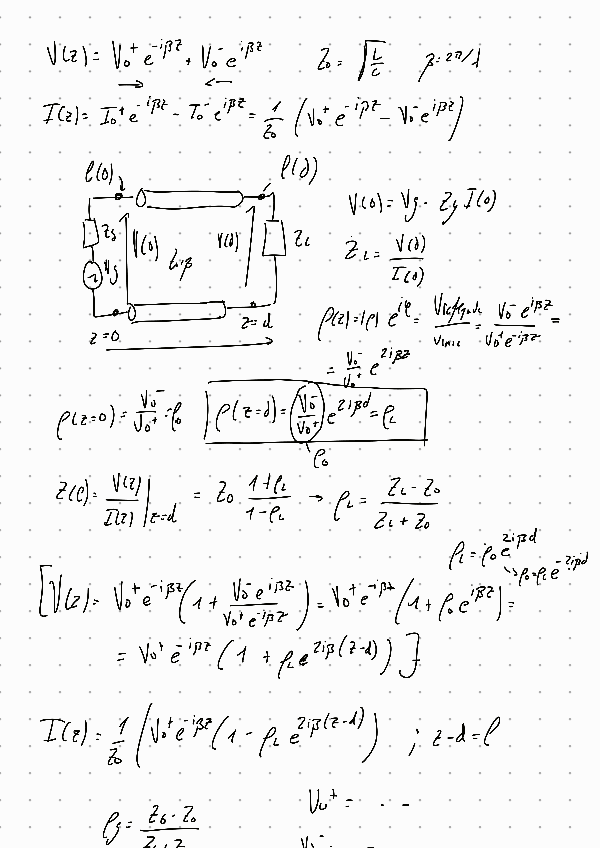 V(z) = V₀⁺ e^{-iβz} + V₀⁻ e^{iβz}    Z₀ = √(L/C)    β = 2π/λ
→    ←
I(z) = I₀⁺ e^{-iβz} - I₀⁻ e^{iβz} = 1/Z₀ (V₀⁺ e^{-iβz} - V₀⁻ e^{iβz})
ρ(0)    ρ(d)
Zg    V(0)    V(d)    ZL
Vg
z=0    z=d
V(0) = Vg - Zg I(0)
ZL = V(d)/I(d)
ρ(z) = |ρ| e^{iφ} = = V₀⁻ e^{iβz} / V₀⁺ e^{-iβz} =
= V₀⁻/V₀⁺ e^{2iβz}
ρ(z=0) = V₀⁻/V₀⁺ = ρ₀    ρ(z=d) = (V₀⁻/V₀⁺) e^{2iβd} = ρL
ρ₀
Z(ρ) = V(z)/I(z) |z=d = Z₀ (1+ρL)/(1-ρL) → ρL = (ZL - Z₀)/(ZL + Z₀)
ρL = ρ₀ e^{2iβd}
↳ ρ₀ = ρL e^{-2iβd}
[V(z) = V₀⁺ e^{-iβz} (1 + V₀⁻ e^{iβz} / V₀⁺ e^{-iβz}) = V₀⁺ e^{-iβz} (1 + ρ₀ e^{iβz}) =
= V₀⁺ e^{-iβz} (1 + ρL e^{2iβ(z-d)})]
I(z) = 1/Z₀ (V₀⁺ e^{-iβz} (1 - ρL e^{2iβ(z-d)})    ; z-d = ℓ
V₀⁺ = . . -
ρg = ZG - Z₀
V₀⁻